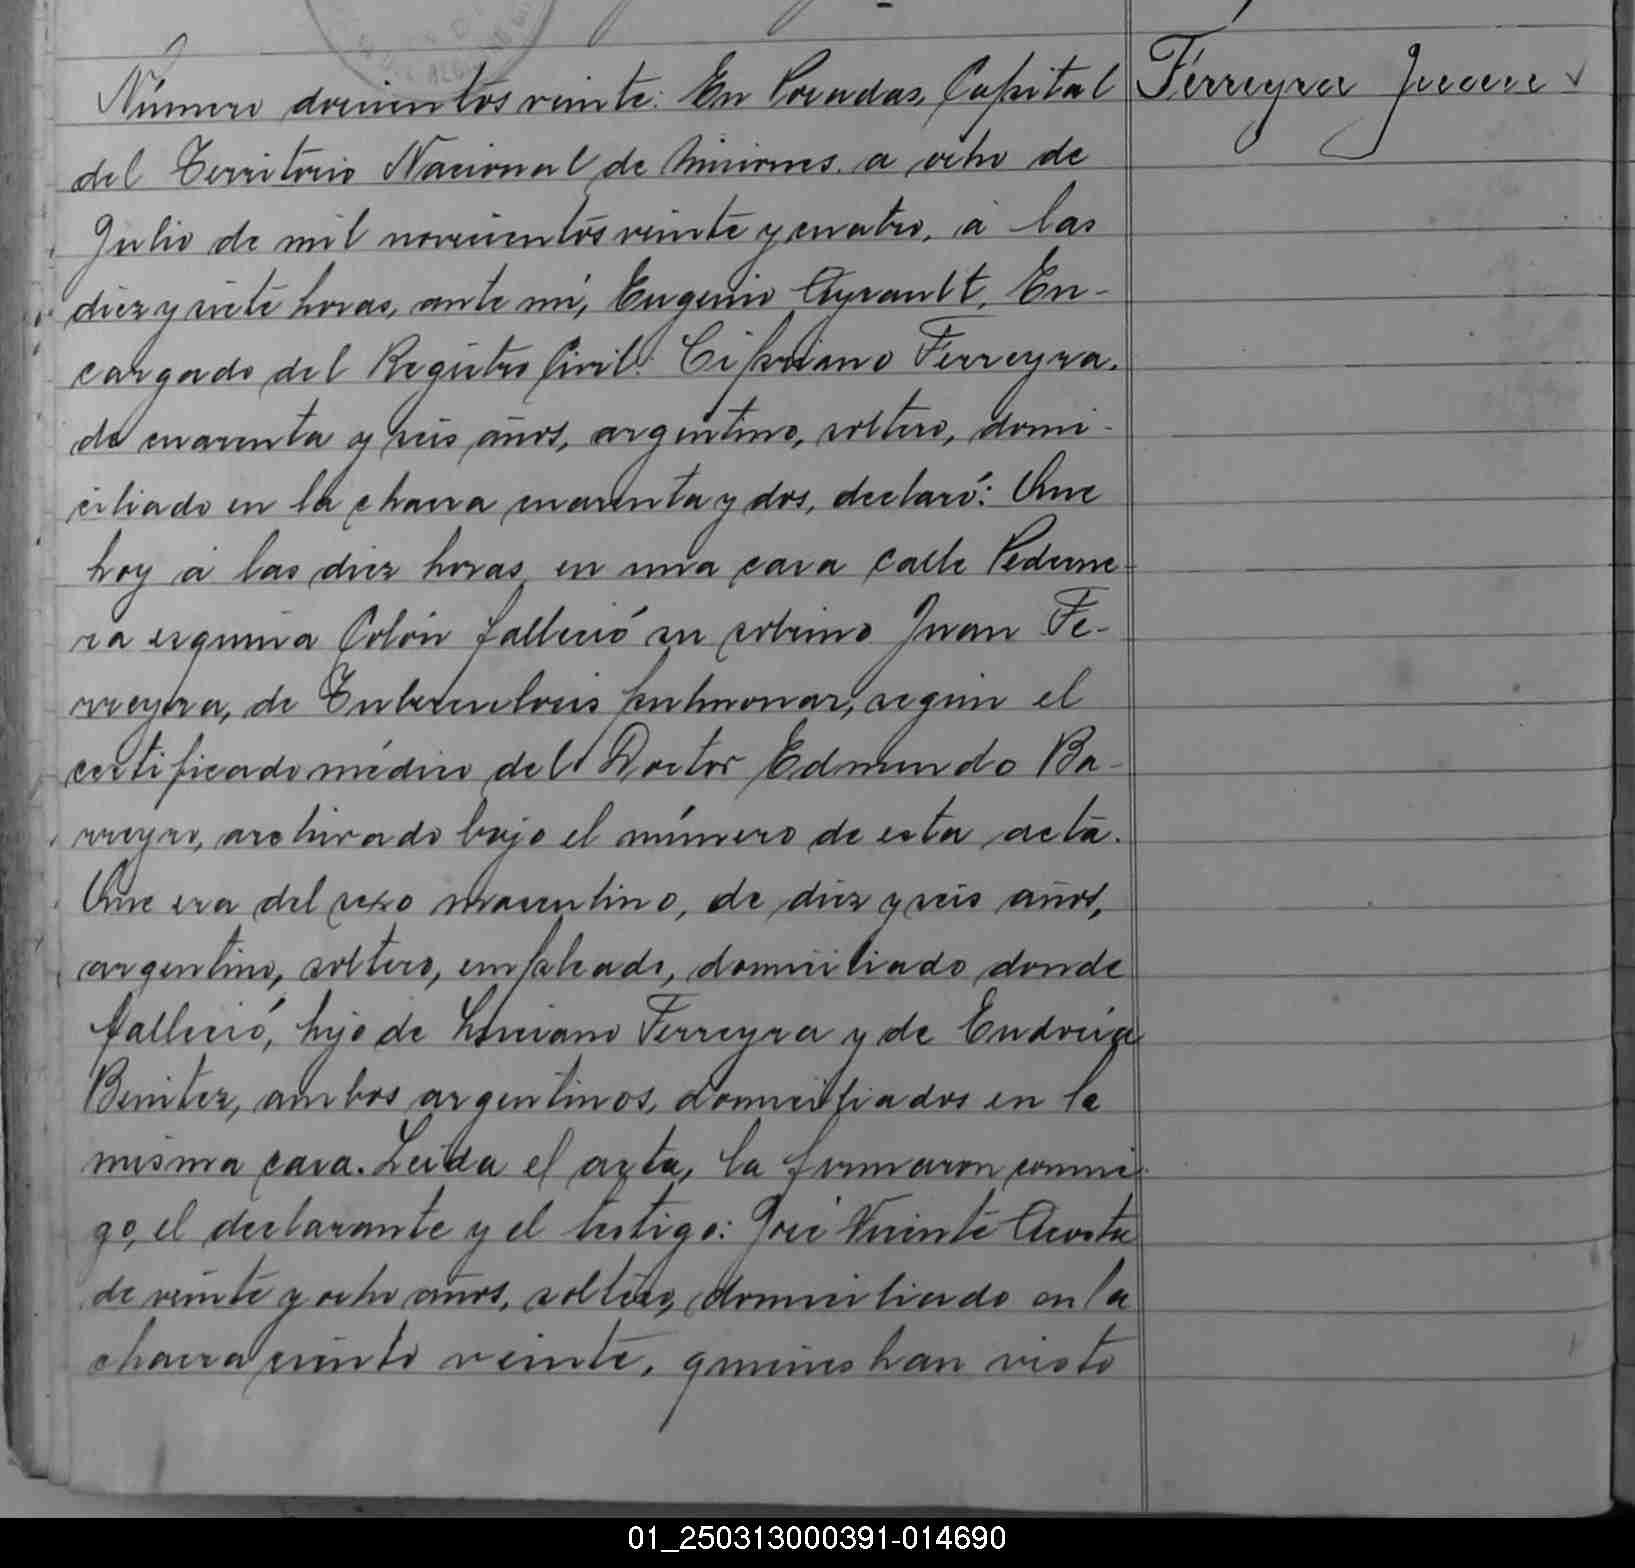 Ferreyra Juan
Número docientos veinte: En Posadas, Capital
del Territorio Nacional de Misiones. a ocho de
Julio de mil novecientos veinte y cuatro, á las
diez y siete horas, ante mí, Eugenio Ayrault, En-
cargado del Registro Civil: Cipriano Ferreyra,
de cuarenta y seis años, argentino, soltero, domi-
ciliado en la chacra cuarenta y dos, declaró: Que
hoy á las diez horas, en una casa calle Pederne-
ra esquina Colón falleció su sobrino Juan Fe-
rreyra, de Tuberculosis pulmonar, según el
certificado médico del Doctor Edmundo Ba-
rreyro, archivado bajo el número de esta acta.
Que era del sexo masculino, de diez y seis años,
argentino, soltero, empleado, domiciliado donde
falleció, hijo de Luciano Ferreyra y de Eudocia
Benitez, ambos argentinos, domiciliados en la
misma casa. Leída el acta, la firmaron conmi-
go, el declarante y el testigo: José Vicente Acosta
de veinte y ocho años, soltero, domiciliado en la
chacra ciento veinte, quienes han visto
01_250313000391-014690